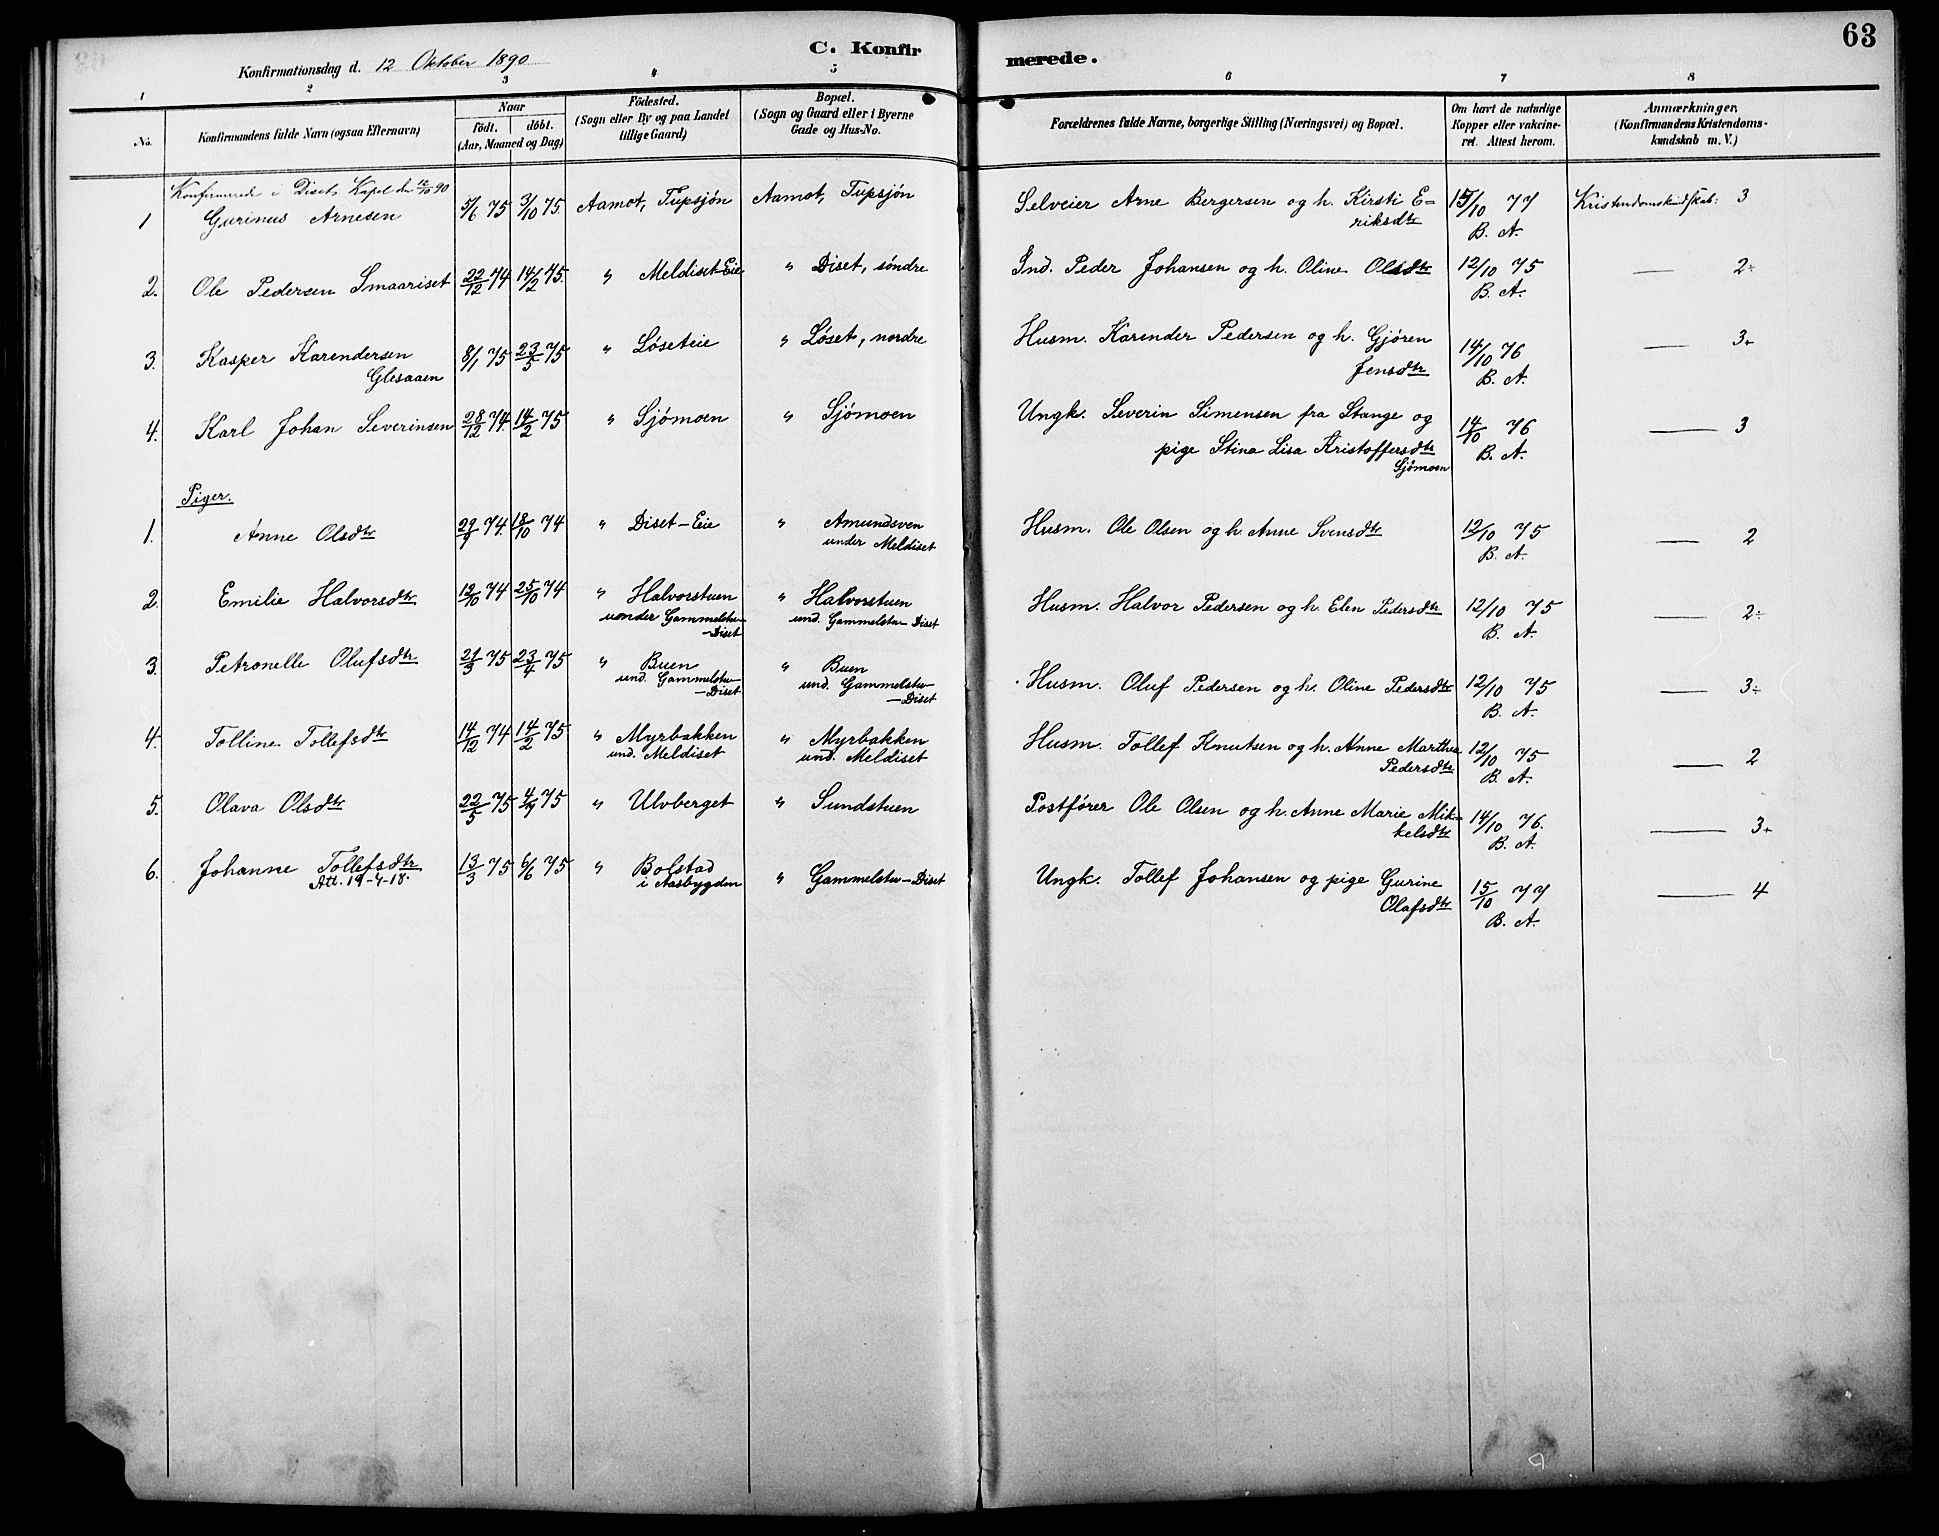 63
Konfirmationsdag d. 12 Oktober 1890
C. Konfirmerede.
1 2 3 4 5 6 7 8
No.
Konfirmandens fulde Navn (ogsaa Efternavn)
Naar
født. døbt.
(Aar, Maaned og Dag)
Fødested.
(Sogn eller By og paa Landet
tillige Gaard)
Bopæl.
(Sogn og Gaard eller i Byerne
Gade og Hus-No.
Forældrenes fulde Navne, borgerlige Stilling (Næringsvei) og Bopæl.
Om havt de naturlige
Kopper eller vakcine-
ret. Attest herom.
Anmærkninger.
(Konfirmandens Kristendoms-
kundskab m. V.)
Konfirmerede i Diset Kapel den 12/10 90
1 Gurinus Arnesen 5/6 75 3/10 75. Aamot, Tupsjøn Aamot, Tupsjøn Selveier Arne Bergersen og h. Kirsti E- 15/10 77 Kristendomskundskab: 3
riksdtr B. A.
2. Ole Pedersen Smaariset 22/12 74 14/2 75. " Meldiset-Eie " Diset, søndre Ind. Peder Johansen og h. Oline Olsdtr 12/10 75 — 2÷
B. A.
3. Kasper Karendersen 8/1 75 23/5 75 " Løseteie " Løset, nordre Husm. Karender Pedersen og h. Gjøren 14/10 76 — 3+
Glesaaen Jensdtr B. A.
4. Karl Johan Severinsen 28/12 74. 14/2 75 " Sjømoen " Sjømoen Ungk. Severin Simensen fra Stange og 14/10 76 — 3
pige Stina Lisa Kristoffersdtr B. A.
Sjømoen
Piger.
1. Anne Olsdtr 29/9 74. 18/10 74 " Diset-Eie " Amundsven Husm. Ole Olsen og h. Anne Svensdtr 12/10 75 — 2
under Meldiset B. A.
2. Emilie Halvorsdtr 12/10 74 25/10 74 " Halvorstuen " Halvorstuen Husm. Halvor Pedersen og h. Elen Pedersdtr 12/10 75 — 2÷
under Gammelstu- und. Gammelstu-Diset B. A.
-Diset
3. Petronelle Olufsdtr 21/3 75 23/4 75 " Buen " Buen Husm. Oluf Pedersen og h. Oline Pedersdtr 12/10 75 — 3÷
und. Gammelstu- und. Gammelstu- B. A.
-Diset -Diset
4. Tolline Tollefsdtr 14/12 74 14/2 75 " Myrbakken " Myrbakken Husm. Tollef Knutsen og h. Anne Marthea 12/10 75 — 2
und. Meldiset und. Meldiset Pedersdtr B. A.
5. Olava Olsdtr 22/5 75 4/7 75 " Ulvberget " Sundstuen Postfører Ole Olsen og h. Anne Marie Mik- 14/10 76. — 3+
kelsdtr B. A.
6. Johanne Tollefsdtr 13/3 75 6/6 75 " Bolstad " Gammelstu-Diset Ungk. Tollef Johansen og pige Gurine 15/10 77 — 4
Att. 19-4-18. i Aasbygden Olafsdtr B. A.